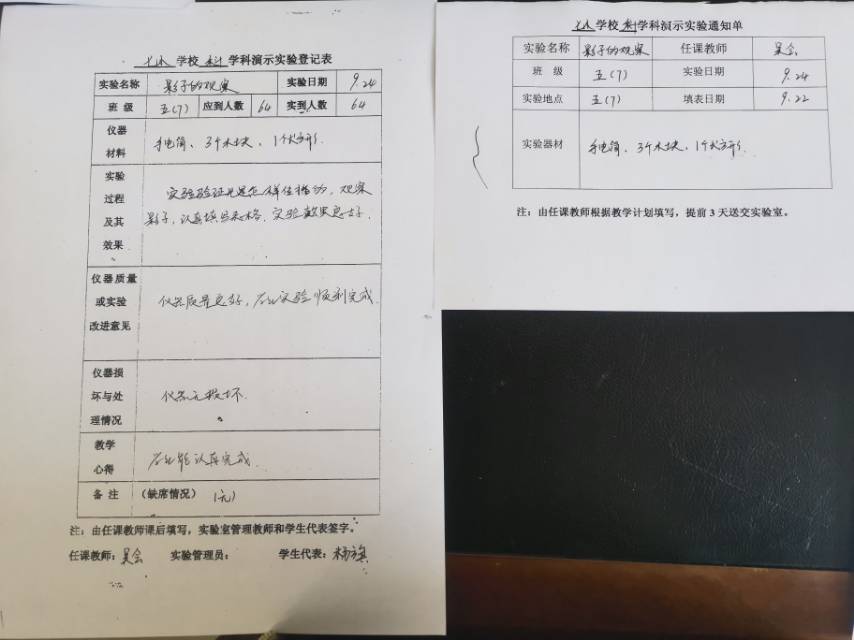 学校 科 学科演示实验登记表
实验名称 影子的观察 实验日期 9.24
班 级 五(7) 应到人数 64 实到人数 64
仪器
材料
手电筒、3个木块、1个长方形
实验
过程
及其
效果
实验验证光是怎样传播的,观察
影子,认真填写表格。实验效果良好。
仪器质量
或实验
改进意见
仪器质量良好,实验顺利完成
仪器损
坏与处
理情况
仪器无损坏
教学
心得
能认真完成
备 注 (缺席情况) 无
注:由任课教师课后填写,实验室管理教师和学生代表签字。
任课教师:吴会 实验管理员: 学生代表:杨旗
学校 科 学科演示实验通知单
实验名称 影子的观察 任课教师 吴会
班 级 五(7) 实验日期 9.24
实验地点 五(7) 填表日期 9.22
实验器材 手电筒、3个木块、1个长方形
注:由任课教师根据教学计划填写,提前 3 天送交实验室。